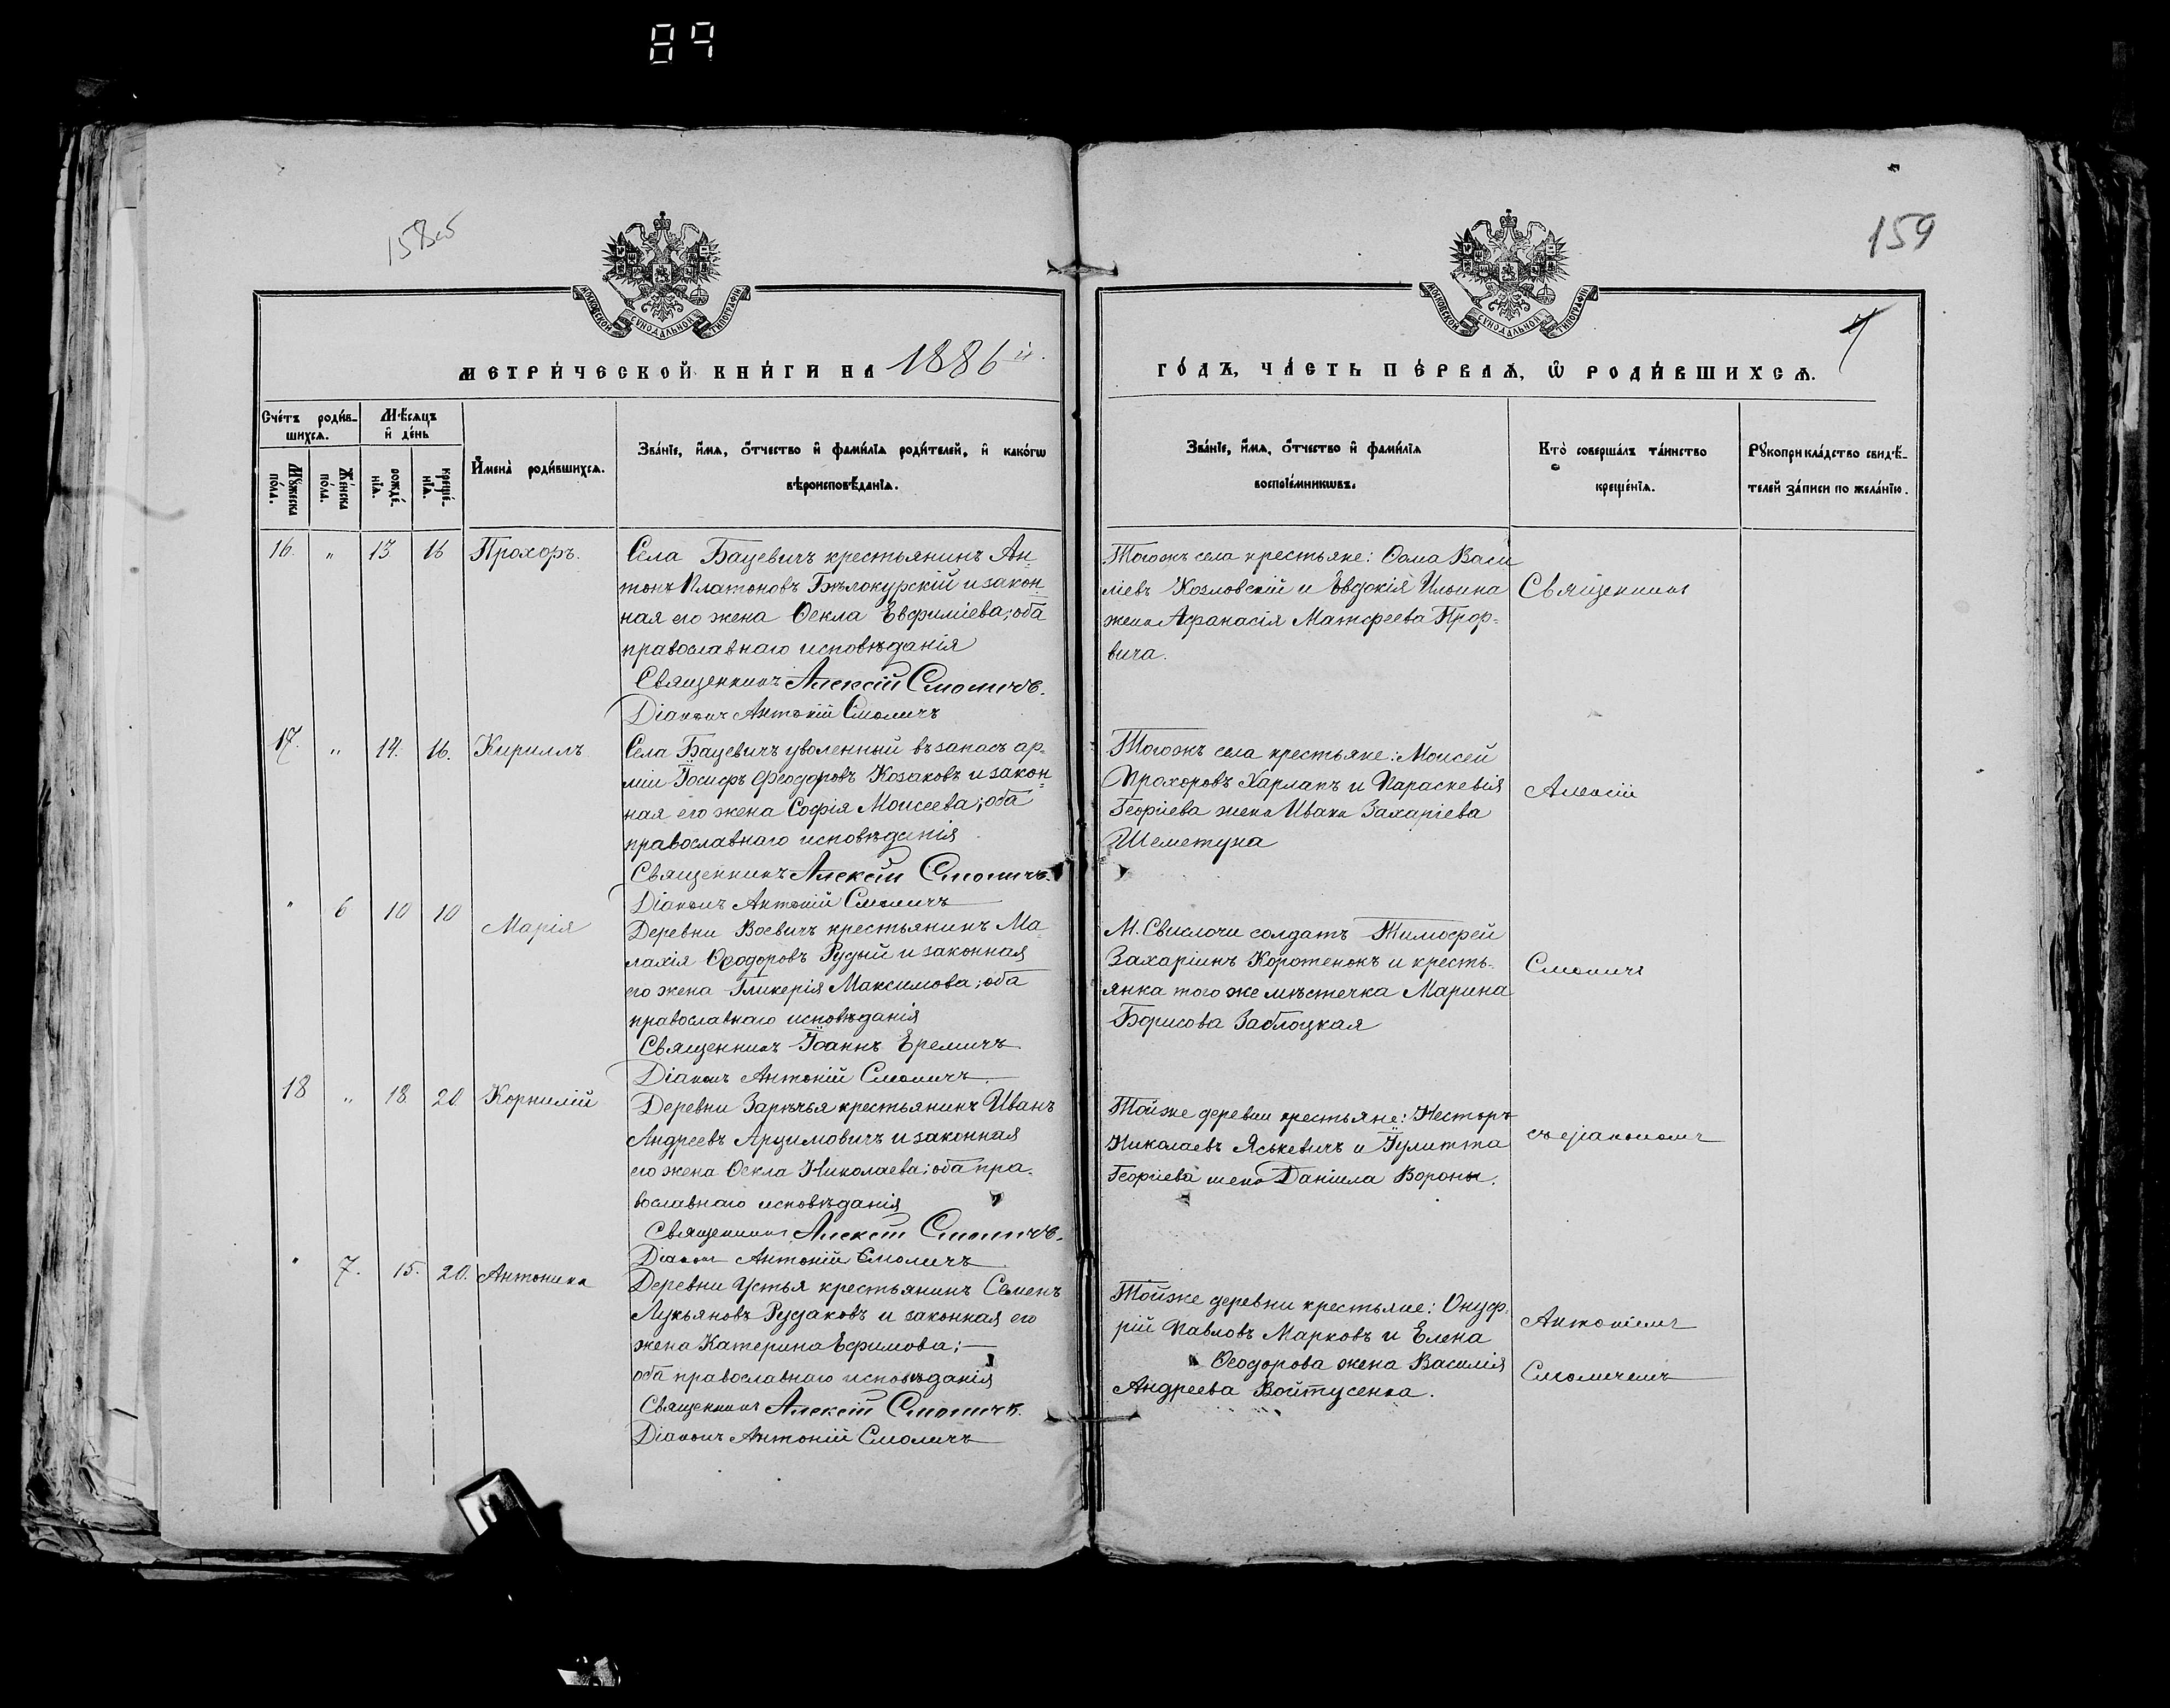 89
158об
159
МОСКОВСКОЙ СѴНОДАЛЬНОЙ ТИПОГРАФІИ
МОСКОВСКОЙ СѴНОДАЛЬНОЙ ТИПОГРАФІИ
МЕТРИ́ЧЕСКОЙ КНИ́ГИ НА 1886 й.
ГО́ДЪ, ЧА́СТЬ ПЕ́РВАѦ, Ѽ РОДИ́ВШИХСѦ.
Сче́тъ роди́в-
шихсѧ.
Мѣ́сѧцъ
и҆ де́нь
Мꙋ́жеска по́ла.
Же́нска по́ла.
рожде́-нїѧ.
креще́-нїѧ.
И҆мена̀ роди́вшихсѧ.
Зва́нїе, и҆́мѧ, ѻ҆́тчество и҆ фами́лїѧ роди́телей, и҆ како́гѡ
вѣроисповѣ́данїѧ.
Зва́нїе, и҆́мѧ, ѻ҆́тчество и҆ фами́лїѧ
воспрїе́мникѡвъ.
Кто̀ соверша́лъ та́инство
креще́нїѧ.
Рꙋкоприкла́дство свидѣ́-
телей за́писи по жела́нїю.
16. " 13 16 Прохоръ.
Села Бацевичъ крестьянинъ Ан-
тонъ Платоновъ Бѣлокурскій и закон-
ная его жена Ѳекла Евфиміева; оба
православнаго исповѣданія
Священникъ Алексій Смоличъ.
Діаконъ Антоній Смоличъ
Тогожъ села крестьяне: Ѳома Васи
ліевъ Козловскій и Евдокія Ильина
жена Афанасія Матфеева
вича.
Священникъ
17. " 14. 16. Кириллъ
Села Бацевичъ уволенный въ запасъ ар-
міи Іосифъ Феодоровъ Козаковъ и закон-
ная его жена Софія Моисеева; оба
православнаго исповѣданія
Священникъ Алексій Смоличъ.
Діаконъ Антоній Смоличъ
Тогожъ села крестьяне: Моисей
Прохоровъ Харлапъ и Параскевія
Георгіева жена Ивана Захаріева
Шеметуна
Алексій
" 6 10 10 Марія
Деревни Воевичъ крестьянинъ Ма-
лахія Ѳеодоровъ Рудый и законная
его жена Гликерія Максимова; оба
православнаго исповѣданія
Священникъ Іоаннъ Еремичъ
Діаконъ Антоній Смоличъ
М. Свислочи солдатъ Тимофей
Захаріинъ Коротенокъ и кресть-
янка того же мѣстечка Марина
Борисова Заблоцкая
Смоличъ
18 " 18 20 Корнилій
Деревни Зарѣчья крестьянинъ Иванъ
Андреевъ Арцимовичъ и законная
его жена Ѳекла Николаева; оба пра-
вославнаго исповѣданія
Священникъ Алексій Смоличъ.
Діаконъ Антоній Смоличъ
Тойже деревни крестьяне: Несторъ
Николаевъ Яськевичъ и Іулитта
Георгіева жена Даніила Вороны.
съ діакономъ
" 7. 15. 20. Антонина
Деревни Устья крестьянинъ Семенъ
Лукьяновъ Рудаковъ и законная его
жена Катерина Ефимова;
оба православнаго исповѣданія
Священникъ Алексій Смоличъ.
Діаконъ Антоній Смоличъ
Тойже деревни крестьяне: Онуф-
рій Павловъ Марковъ и Елена
Ѳеодорова жена Василія
Андреева Войтусенка.
Антоніемъ
Смоличемъ